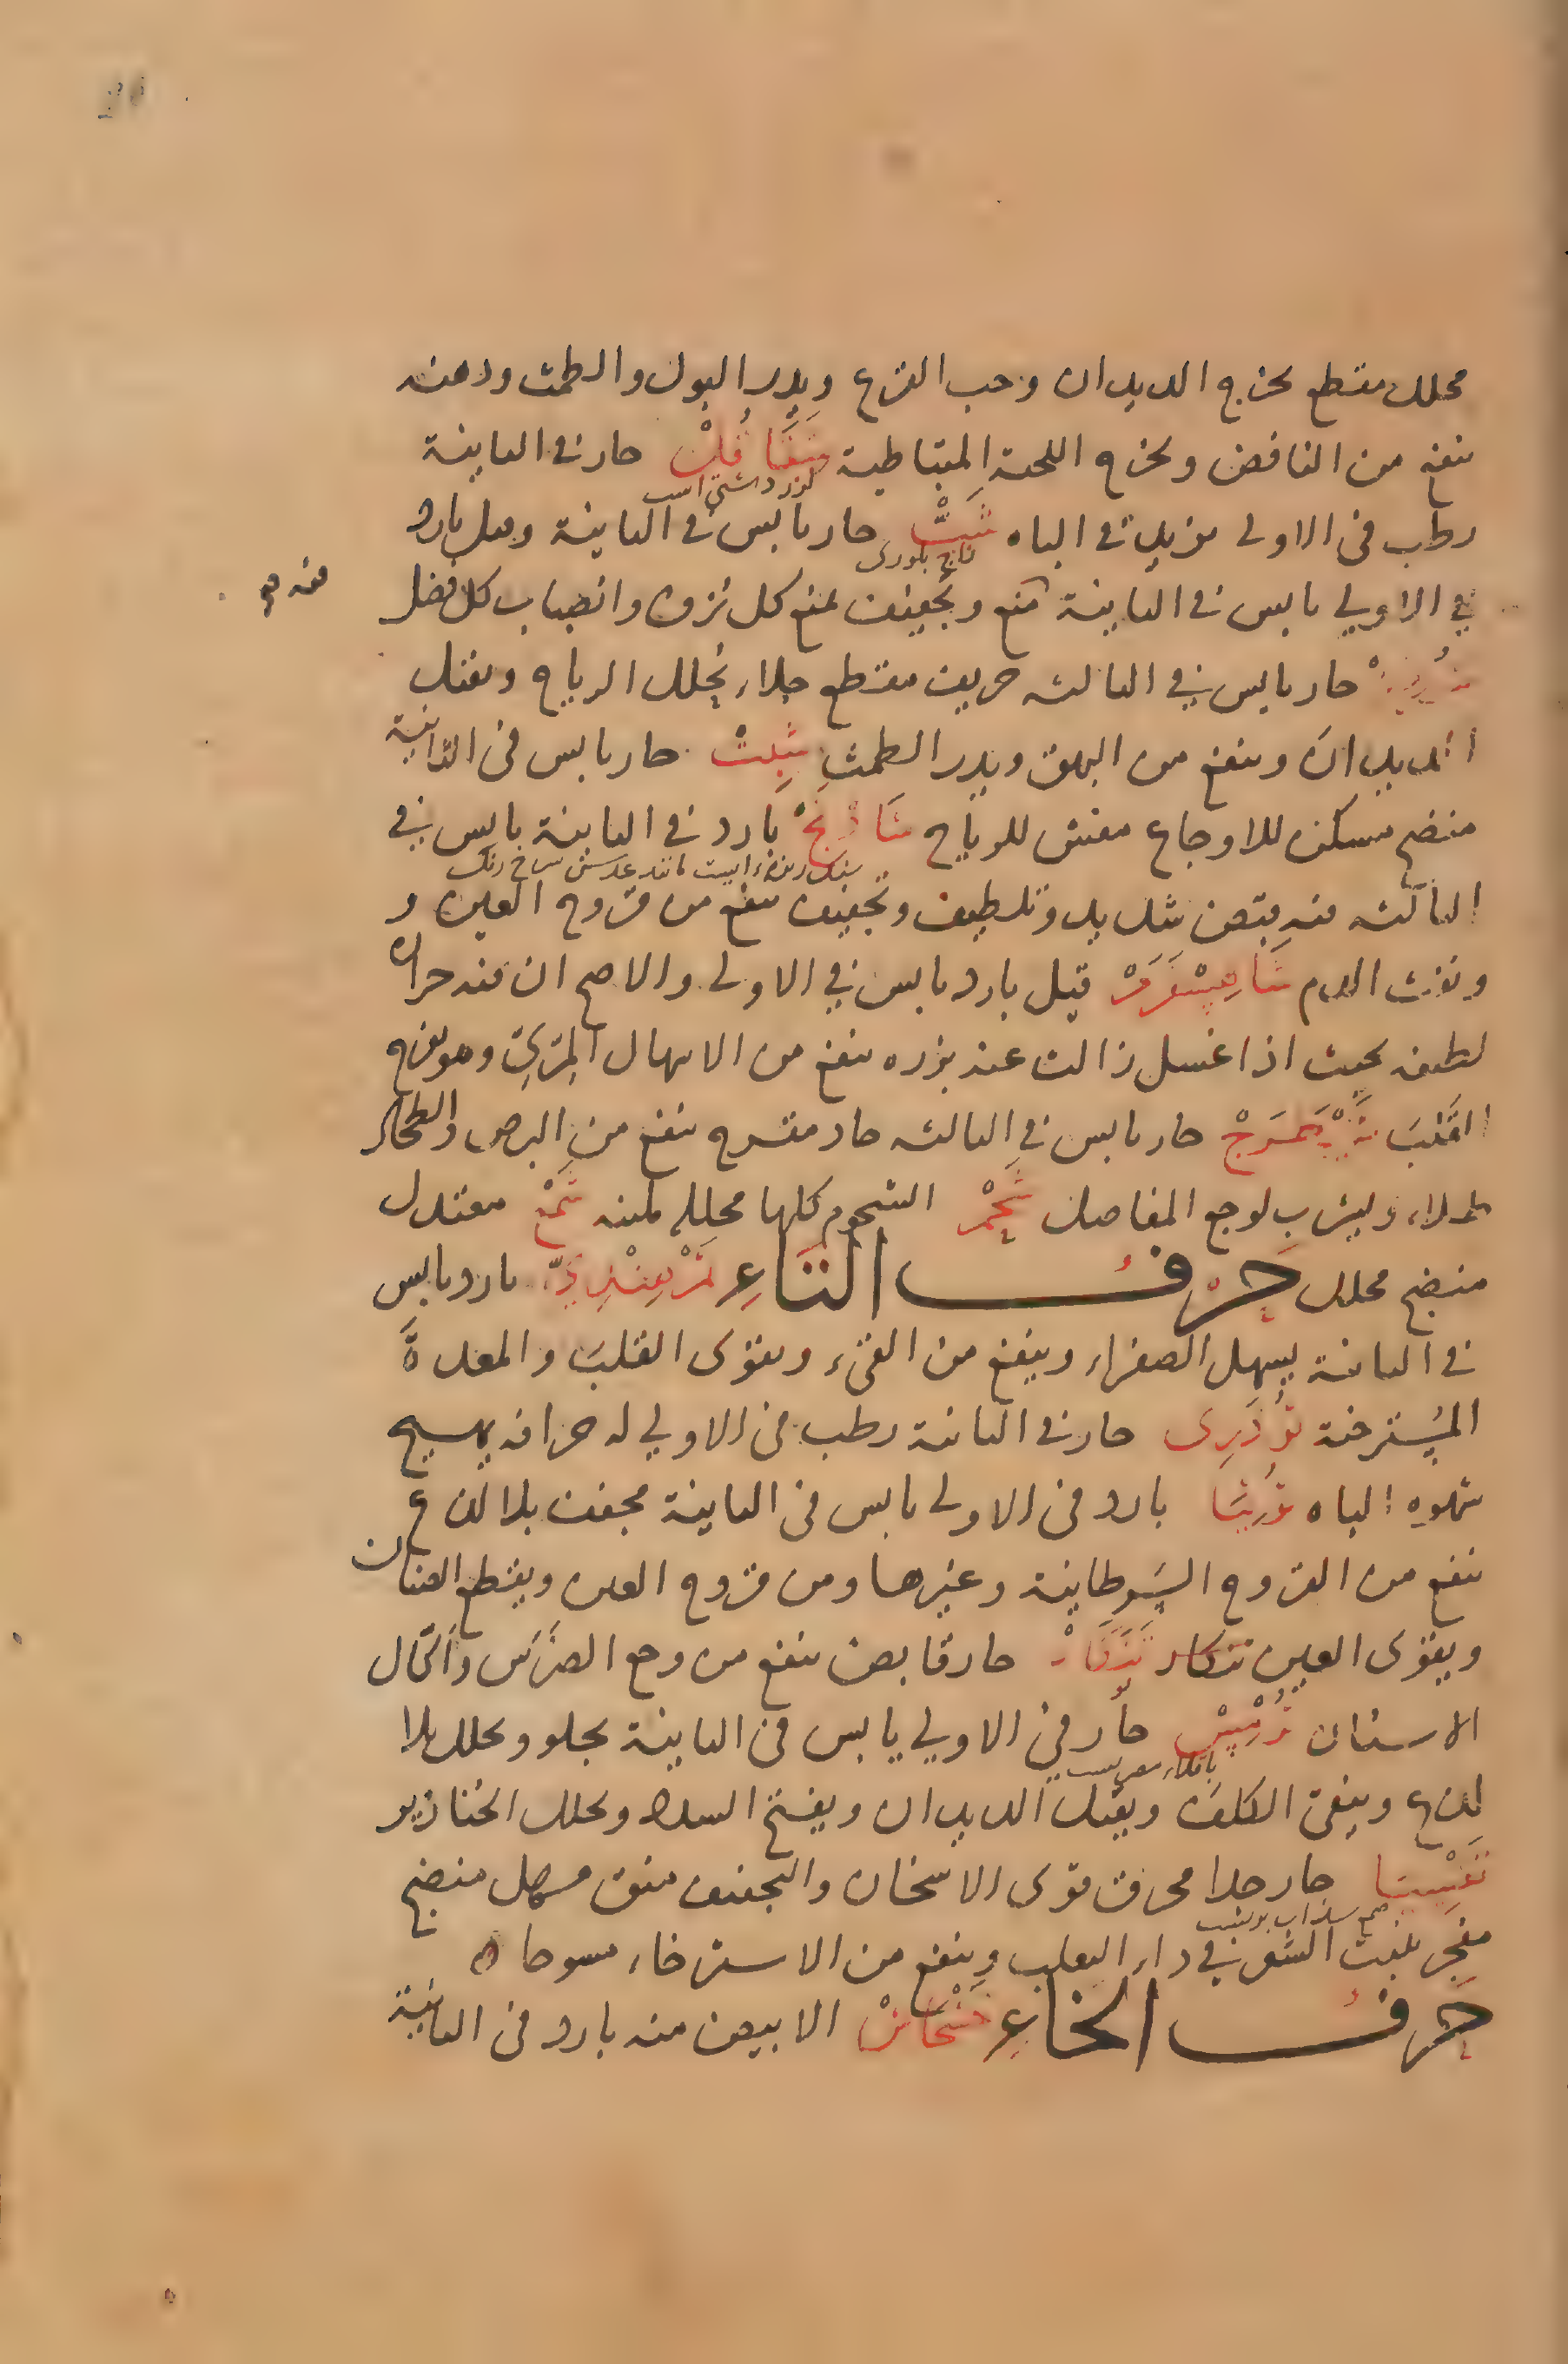 محلل مقطع يخرج الديدان وحب القرع ويدر البول والطمث ودهنه
ينفع من النافض ويخرج اللحمة المتباطية شقاقل حار في الثانية
رطب في الاولى يزيد في الباه شبّ حار يابس في الثانية وقيل بارد
في الاولى يابس في الثانية منع وتجفيف يمنع كل نزف وانصباب كل فضل
منه مه
شونيز حار يابس في الثالثه حريف مقطع جلاء يحلل الرياح ويقتل
الديدان وينفع من البهق ويدر الطمث شِبِت حار يابس في الثانية
منضج مسكن للاوجاع مفش للرياح شَاذنج بارد في الثانية يابس في
الثالثه فيه قبض شديد وتلطيف وتجفيف ينفع من قروح العين و
ونفث الدم شاهسفرم قيل بارد يابس في الاولى والاصح ان فيه حرارة
لطيفه بحيث اذا غسل زالت عنه بزره ينفع من الاسهال المرّيّ وهو يفرح
القلب شيطرج حار يابس في الثالثه حاد مقرح ينفع من البرص والطحال
طلاء ويشرب لوجع المفاصل شحم الشحوم كلها محلله ملينه شمع معتدل
منضج محلل حرف التاء تمر هندي بارد يابس
في الثانية يسهل الصفراء وينفع من القيء ويقوى القلب والمعدة
المسترخية تودرى حار في الثانية رطب في الاولى له حرافه يهيج
شهوه الباه توتيا بارد في الاولى يابس في الثانية مجفف بلا لذع
ينفع من القروح السرطانية وغيرها ومن قروح العين ويقطع الصنان
ويقوى العين تنكار تنكار حار قابض ينفع من وجع الضرس وأكّال
الاسنان ترمس حار في الاولى يابس في الثانية يجلو ويحلل بلا
لذع وينقى الكلف ويقتل الديدان ويفتح السدد ويحلل الخنازير
تفسيا حار جدا محرق قوى الاسخان والتجفيف منق مسهل منضج
مفجر ينبت الشعر في داء الثعلب وينفع من الاسترخاء مسوحا
حرف الخاء خشخاش الابيض منه بارد في الثانية